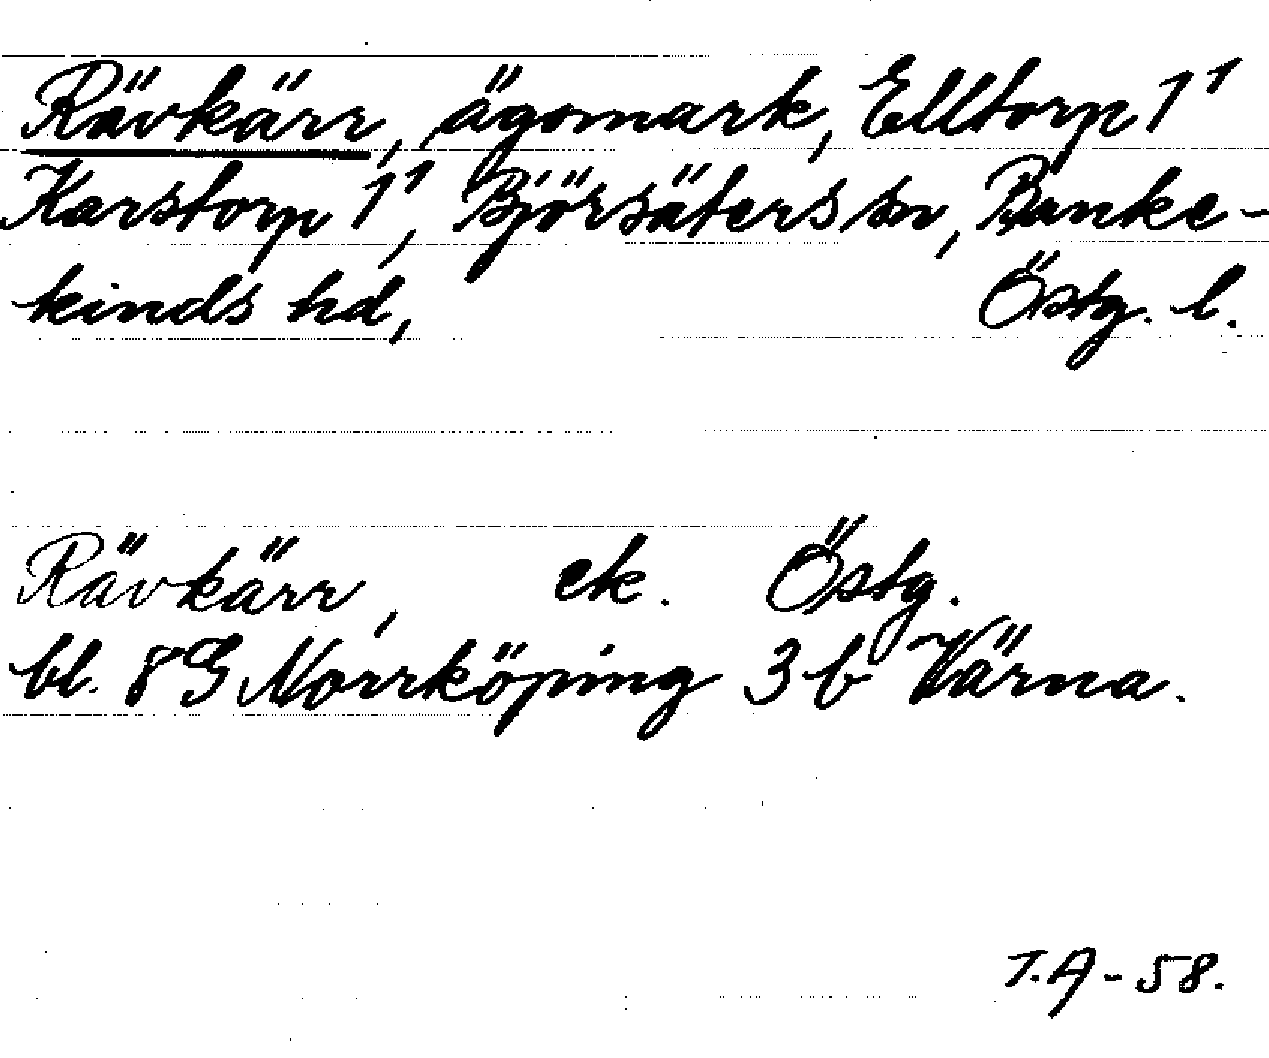 Rävkärr, ägomark, Elltorp 1¹
Karstorp 1¹, Björsäters sn, Banke-
kinds hd, Östg. l.
Rävkärr, ek. Östg.
bl. 8G Norrköping 3b Värna.
T.A-58.